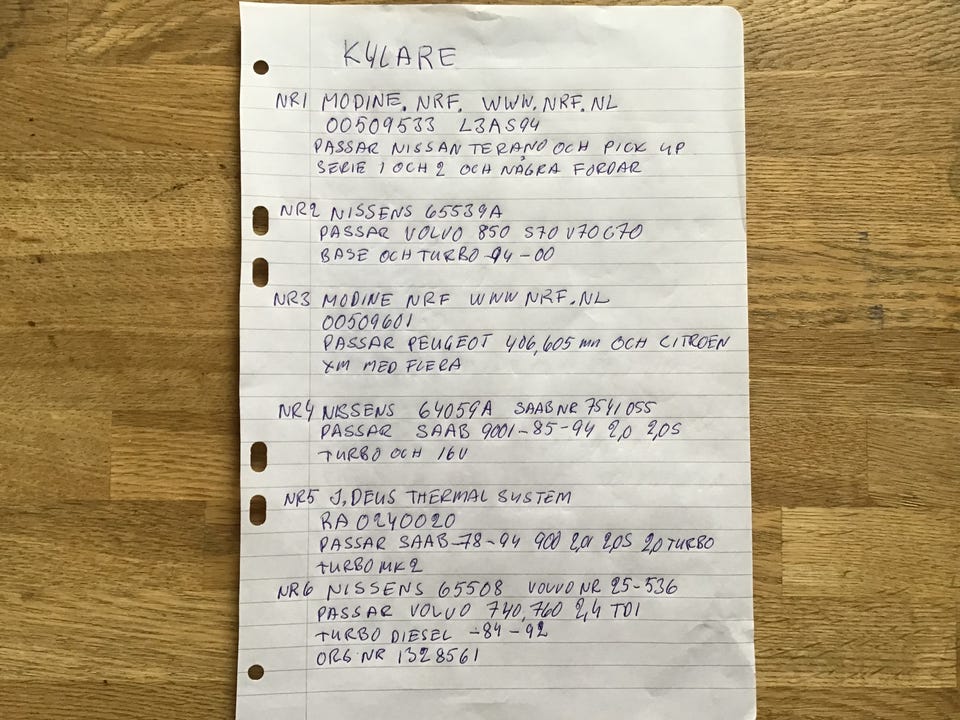 KYLARE
NR1 MODINE. NRF. WWW.NRF.NL
00509533 L3AS94
PASSAR NISSAN TERANO OCH PICK UP
SERIE 1 OCH 2 OCH NÅGRA FORDAR
NR2 NISSENS 65539A
PASSAR VOLVO 850 S70 V70 C70
BASE OCH TURBO -94-00
NR3 MODINE NRF WWW NRF.NL
00509601
PASSAR PEUGEOT 406,605 mm OCH CITROEN
XM MED FLERA
NR4 NISSENS 64059A SAAB NR 7541055
PASSAR SAAB 900I-85-94 2,0 2,0S
TURBO OCH 16V
NR5 J,DEUS THERMAL SYSTEM
RA0240020
PASSAR SAAB-78-94 900 2,0I 2,0S 2,0 TURBO
TURBO MK2
NR6 NISSENS 65508 VOLVO NR 25-536
PASSAR VOLVO 740,760 2,4 TDI
TURBO DIESEL -84-92
ORG NR 1328561